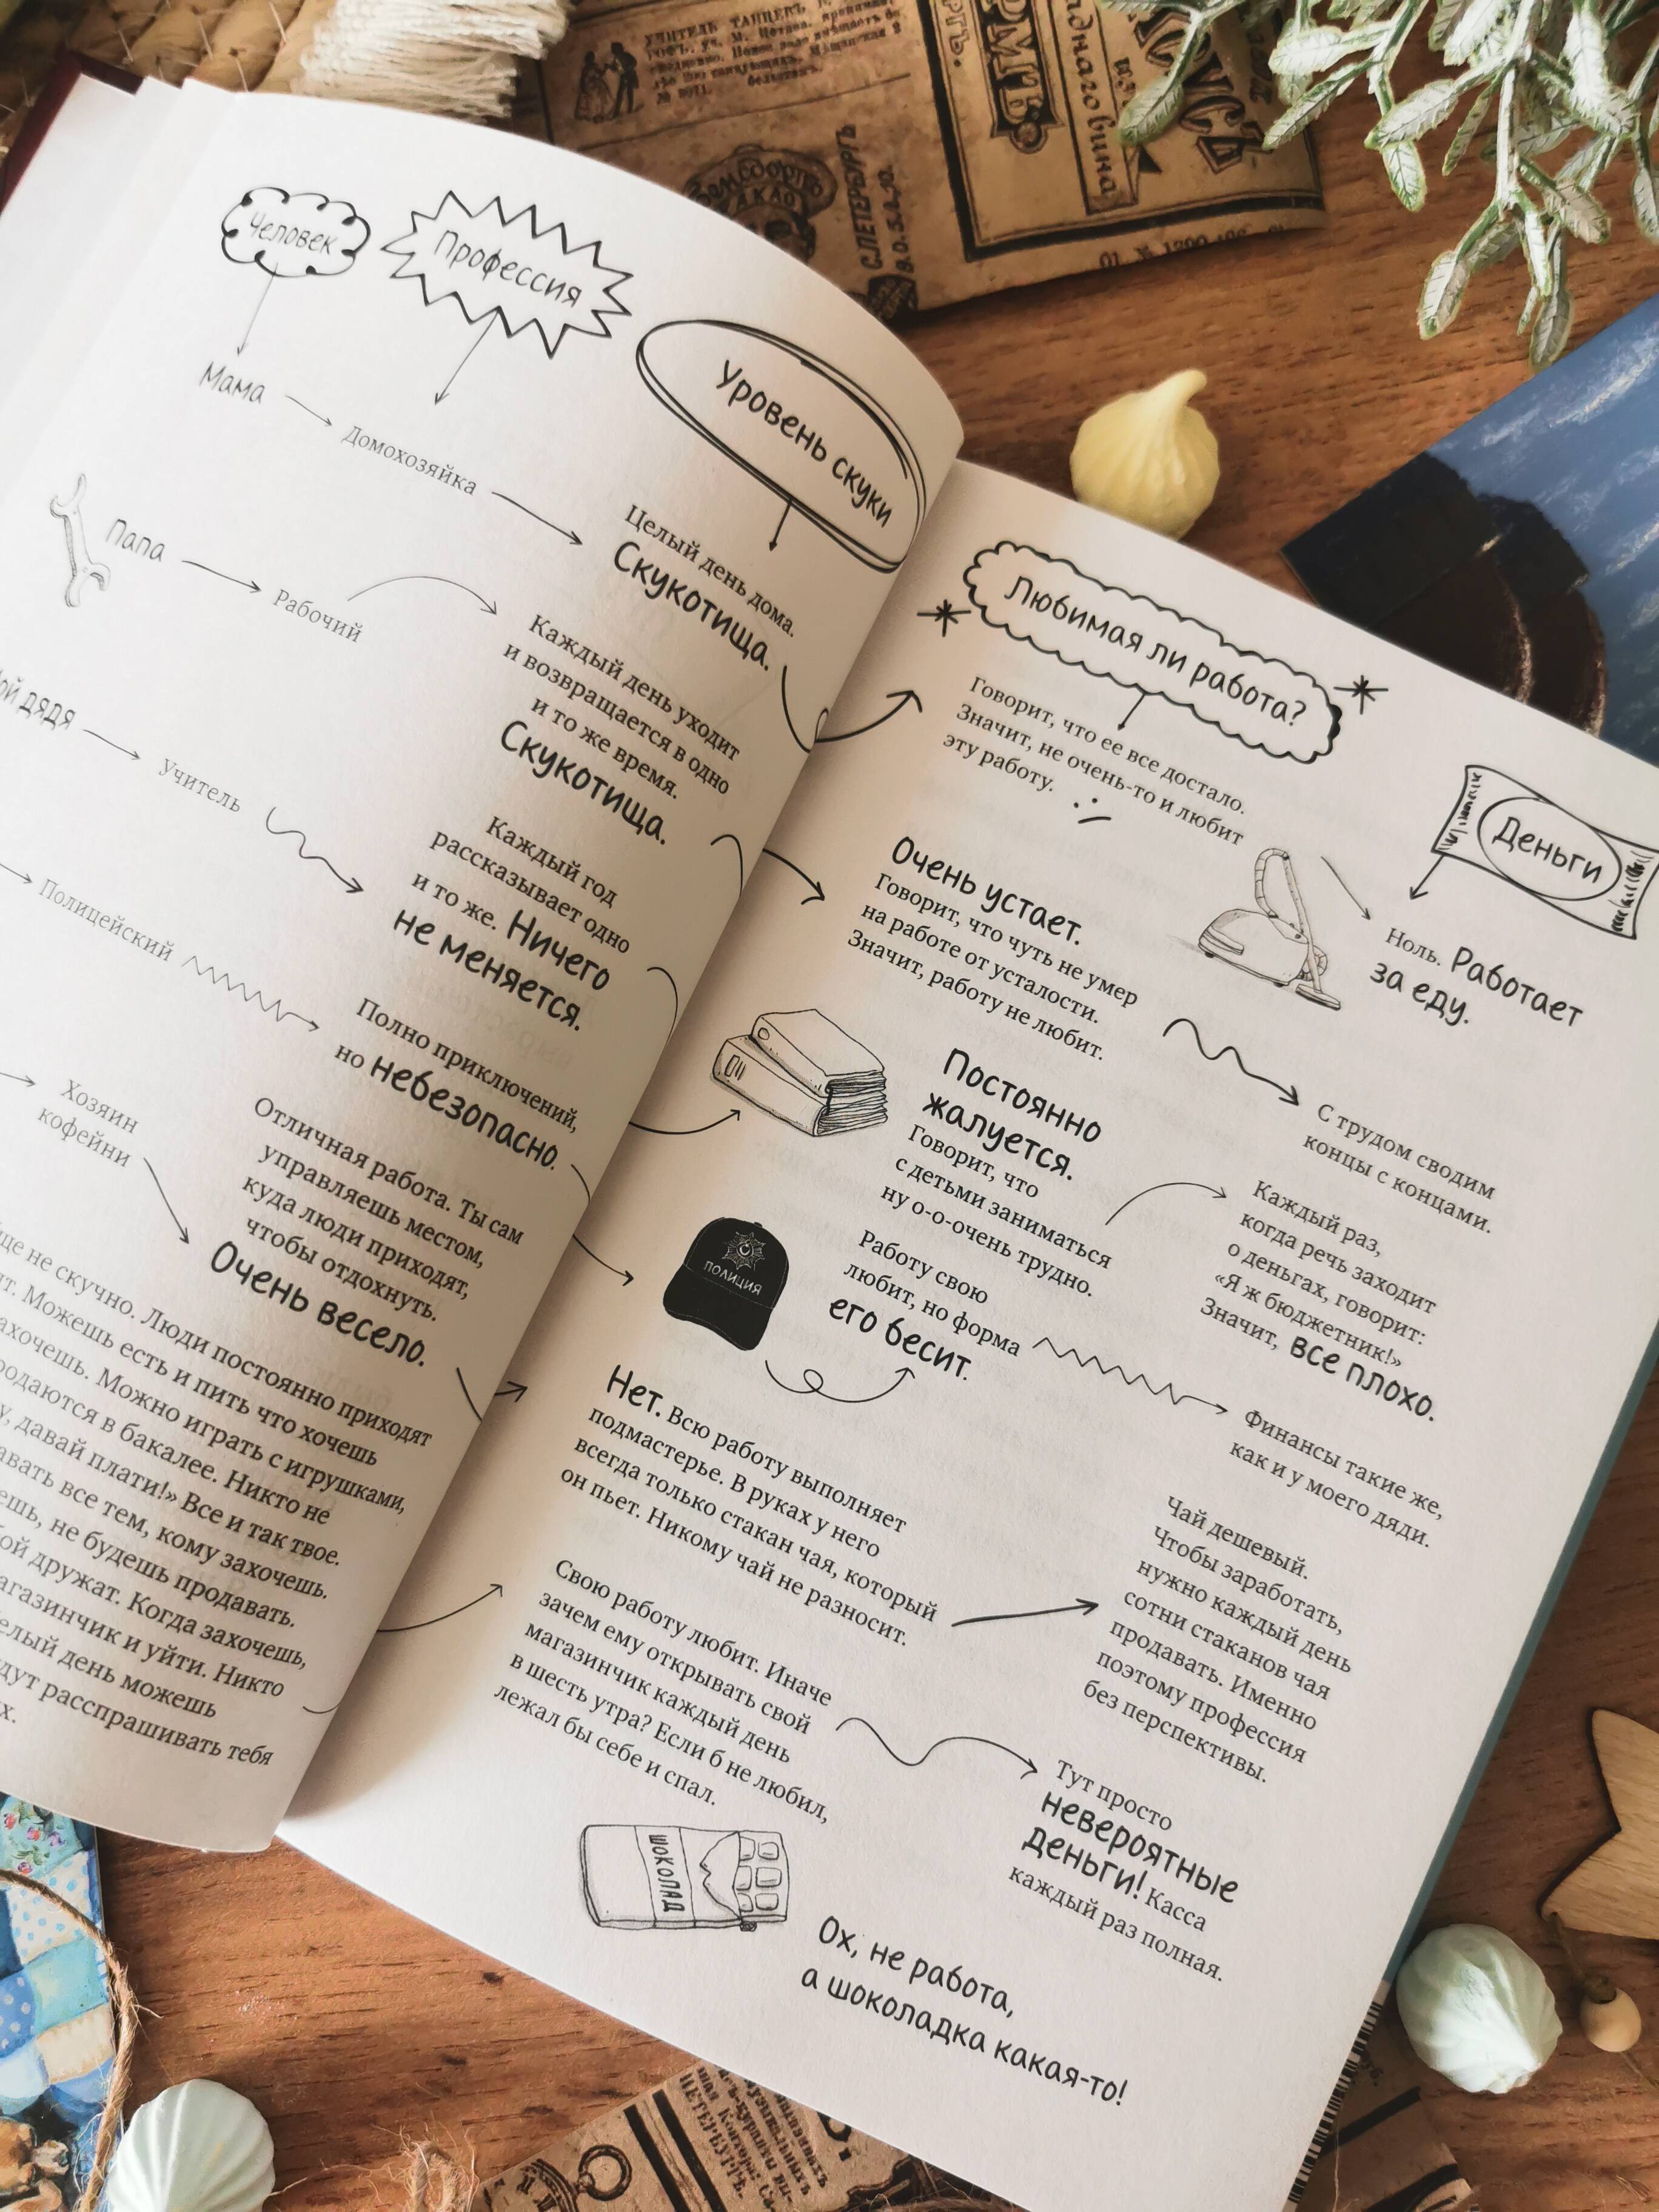 УЧИТЕЛЬ ТАНЦЕВЪ
№ 8071.
С.ПЕТЕРБОРГЪ
В.О. 5 4
раднаго вина
Человек
Профессия
Уровень скуки
Мама
Домохозяйка
Целый день дома.
Скукотища.
Папа
Рабочий
Каждый день уходит
и возвращается в одно
и то же время.
Скукотища.
дядя
Учитель
Каждый год
рассказывает одно
и то же. Ничего
не меняется.
Полицейский
Полно приключений,
но небезопасно.
Хозяин
кофейни
Отличная работа. Ты сам
управляешь местом,
куда люди приходят,
чтобы отдохнуть.
Очень весело.
не скучно. Люди постоянно приходят
Можешь есть и пить что хочешь
захочешь. Можно играть с игрушками,
продаются в бакалее. Никто не
давай плати!» Все и так твое.
все тем, кому захочешь.
не будешь продавать.
дружат. Когда захочешь,
магазинчик и уйти. Никто
целый день можешь
расспрашивать тебя
Любимая ли работа?
Говорит, что ее все достало.
Значит, не очень-то и любит
эту работу.
Деньги
Ноль. Работает
за еду.
Очень устает.
Говорит, что чуть не умер
на работе от усталости.
Значит, работу не любит.
С трудом сводим
концы с концами.
Постоянно
жалуется.
Говорит, что
с детьми заниматься
ну о-о-очень трудно.
Каждый раз,
когда речь заходит
о деньгах, говорит:
«Я ж бюджетник!»
Значит, все плохо.
ПОЛИЦИЯ
Работу свою
любит, но форма
его бесит.
Финансы такие же,
как и у моего дяди.
Нет. Всю работу выполняет
подмастерье. В руках у него
всегда только стакан чая, который
он пьет. Никому чай не разносит.
Чай дешевый.
Чтобы заработать,
нужно каждый день
сотни стаканов чая
продавать. Именно
поэтому профессия
без перспективы.
Свою работу любит. Иначе
зачем ему открывать свой
магазинчик каждый день
в шесть утра? Если б не любил,
лежал бы себе и спал.
Тут просто
невероятные
деньги! Касса
каждый раз полная.
ШОКОЛАД
Ох, не работа,
а шоколадка какая-то!